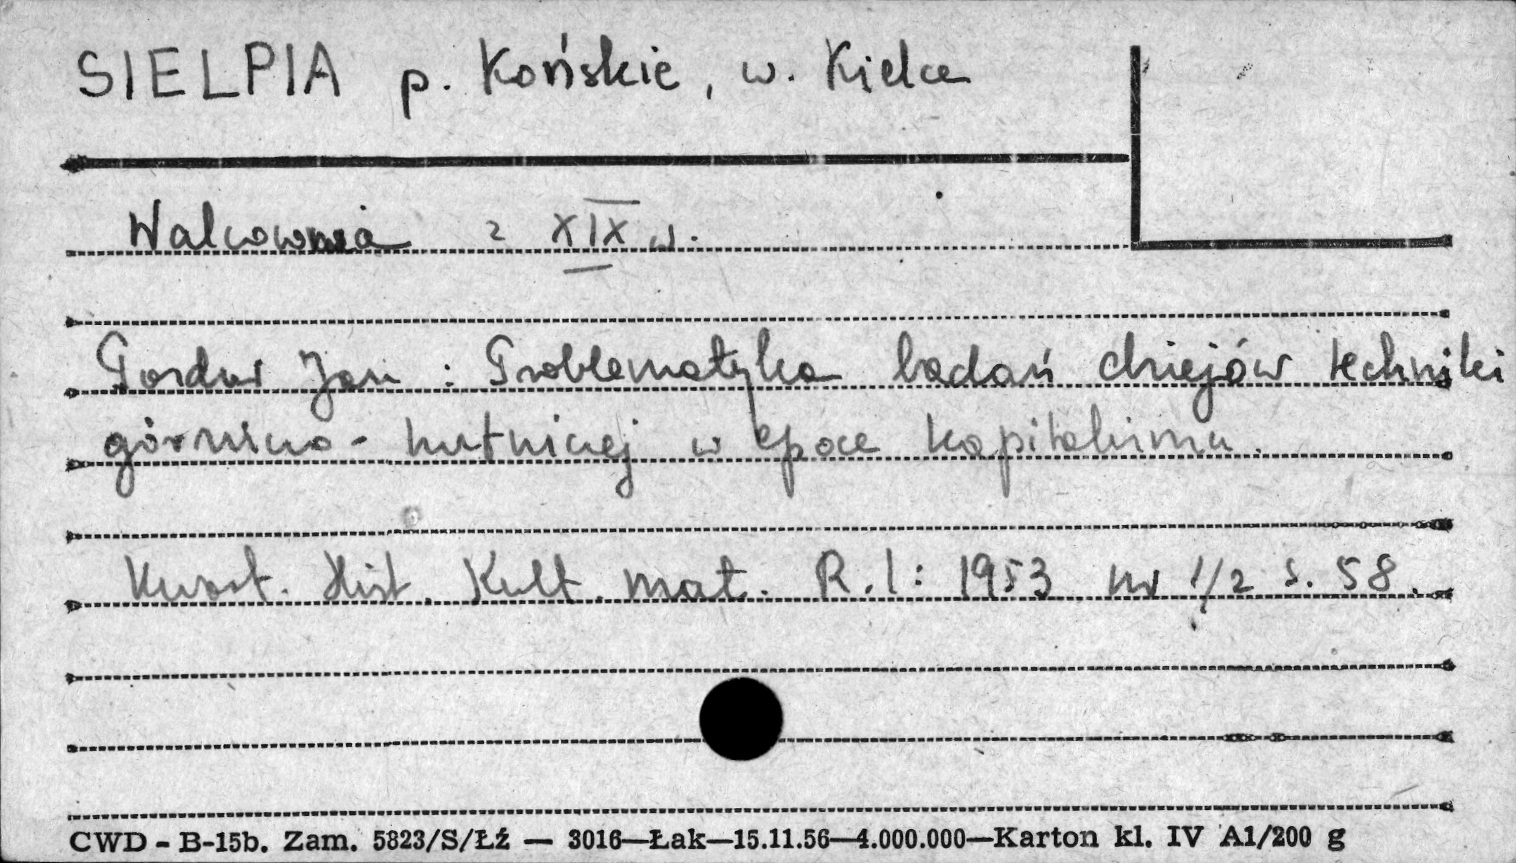 SIELPIA p. Końskie, w. Kielce
Walcownia z XIX w.
Pazdur Jan: Problematyka badań dziejów techniki
górniczo-hutniczej w epoce kapitalizmu.
Kwart. Hist. Kult. mat. R.1: 1953 nr 1/2 s. 58.
CWD - B-15b. Zam. 5823/S/Łź — 3016—Łak—15.11.56—4.000.000—Karton kl. IV A1/200 g